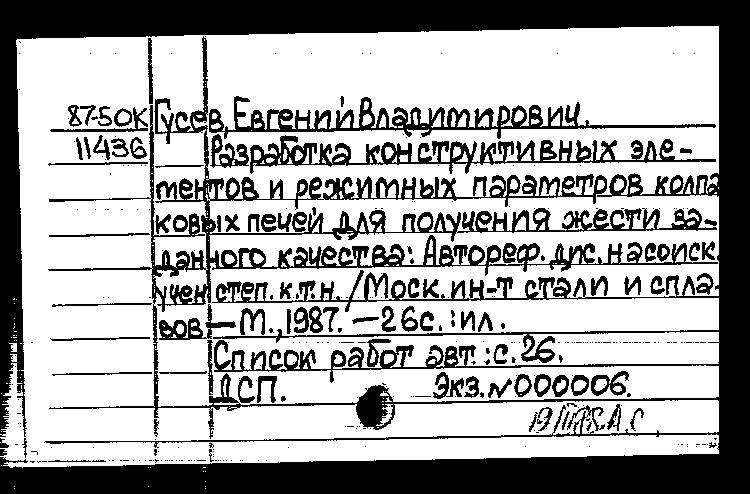 87-50К Гусев, Евгений Владимирович.
11436 Разработка конструктивных эле-
ментов и режимных параметров колпа
ковых печей для получения жести за-
данного качества: Автореф. дис. на соиск.
учен степ. к.т.н. /Моск. ин-т стали и спла-
вов — М., 1987. — 26с. : ил.
Список работ авт. : с. 26.
ДСП. Экз. № 000006.